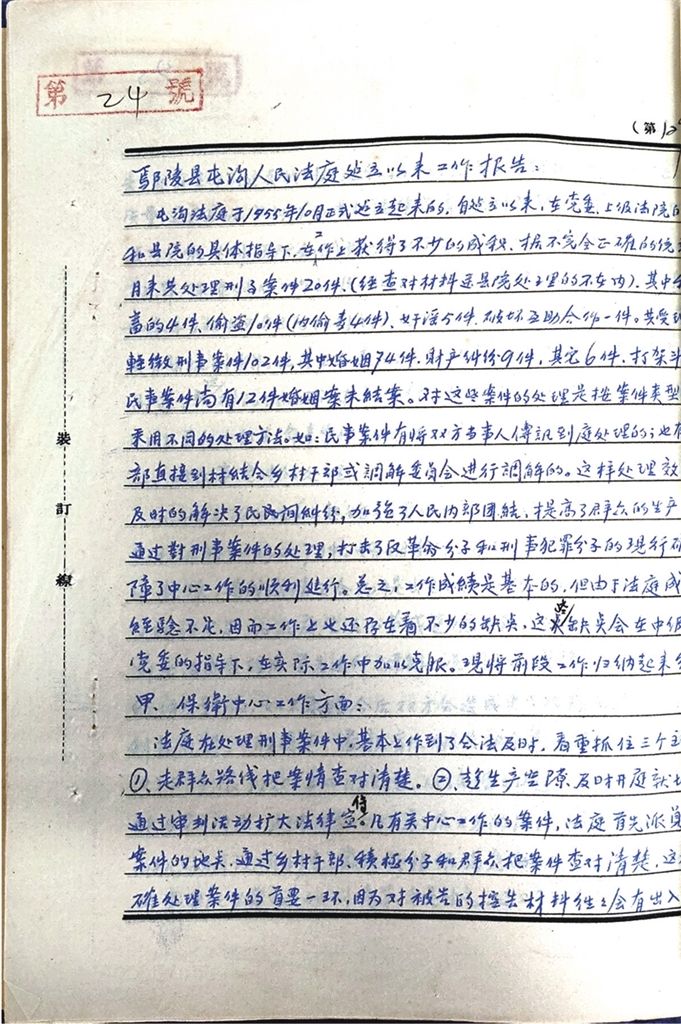 第 24 號
(第 10
鄢陵县屯沟人民法庭成立以来工作报告：
屯沟法庭于1955年10月正式成立起来的，自成立以来，在党委、上级法院的
和县院的具体指导下，在工作上获得了不少的成积，据不完全正确的统
月来共处理刑事案件20件，(经查对材料送县院处理的不在内)，其中
畜的4件，偷盗10件(内偷青4件)，奸淫5件，破坏互助合作一件。共受理
輕微刑事案件102件，其中婚姻74件，财产纠纷9件，其它6件，打架斗
民事案件尚有12件婚姻案未结案。对这些案件的处理是按案件类型
采用不同的处理方法。如：民事案件有将双方当事人傳訊到庭处理的；也有
部直接到村结合乡村干部或調解委员会进行調解的。这样处理效
及时的解决了民民间糾纷，加强了人民内部團结，提高了群众的生产
通过對刑事案件的处理，打击了反革命分子和刑事犯罪分子的現行破
障了中心工作的顺利进行。总之，工作成績是基本的，但由于法庭成
经验不足，因而工作上也还存在着不少的缺点，这些缺点会在中级
党委的指导下，在实际工作中加以克服。现将前段工作归纳起来
甲、保衛中心工作方面：
法庭在处理刑事案件中，基本上作到了合法及时，着重抓住三个主
①、走群众路线把案情查对清楚。②、趁生产空隙及时开庭就地
通过审判活动扩大法律宣传。凡有关中心工作的案件，法庭首先派員
案件的地点，通过乡村干部、積極分子和群众把案件查对清楚，这
確处理案件的首要一环，因为对被告的控告材料往往会有出入
裝
訂
線